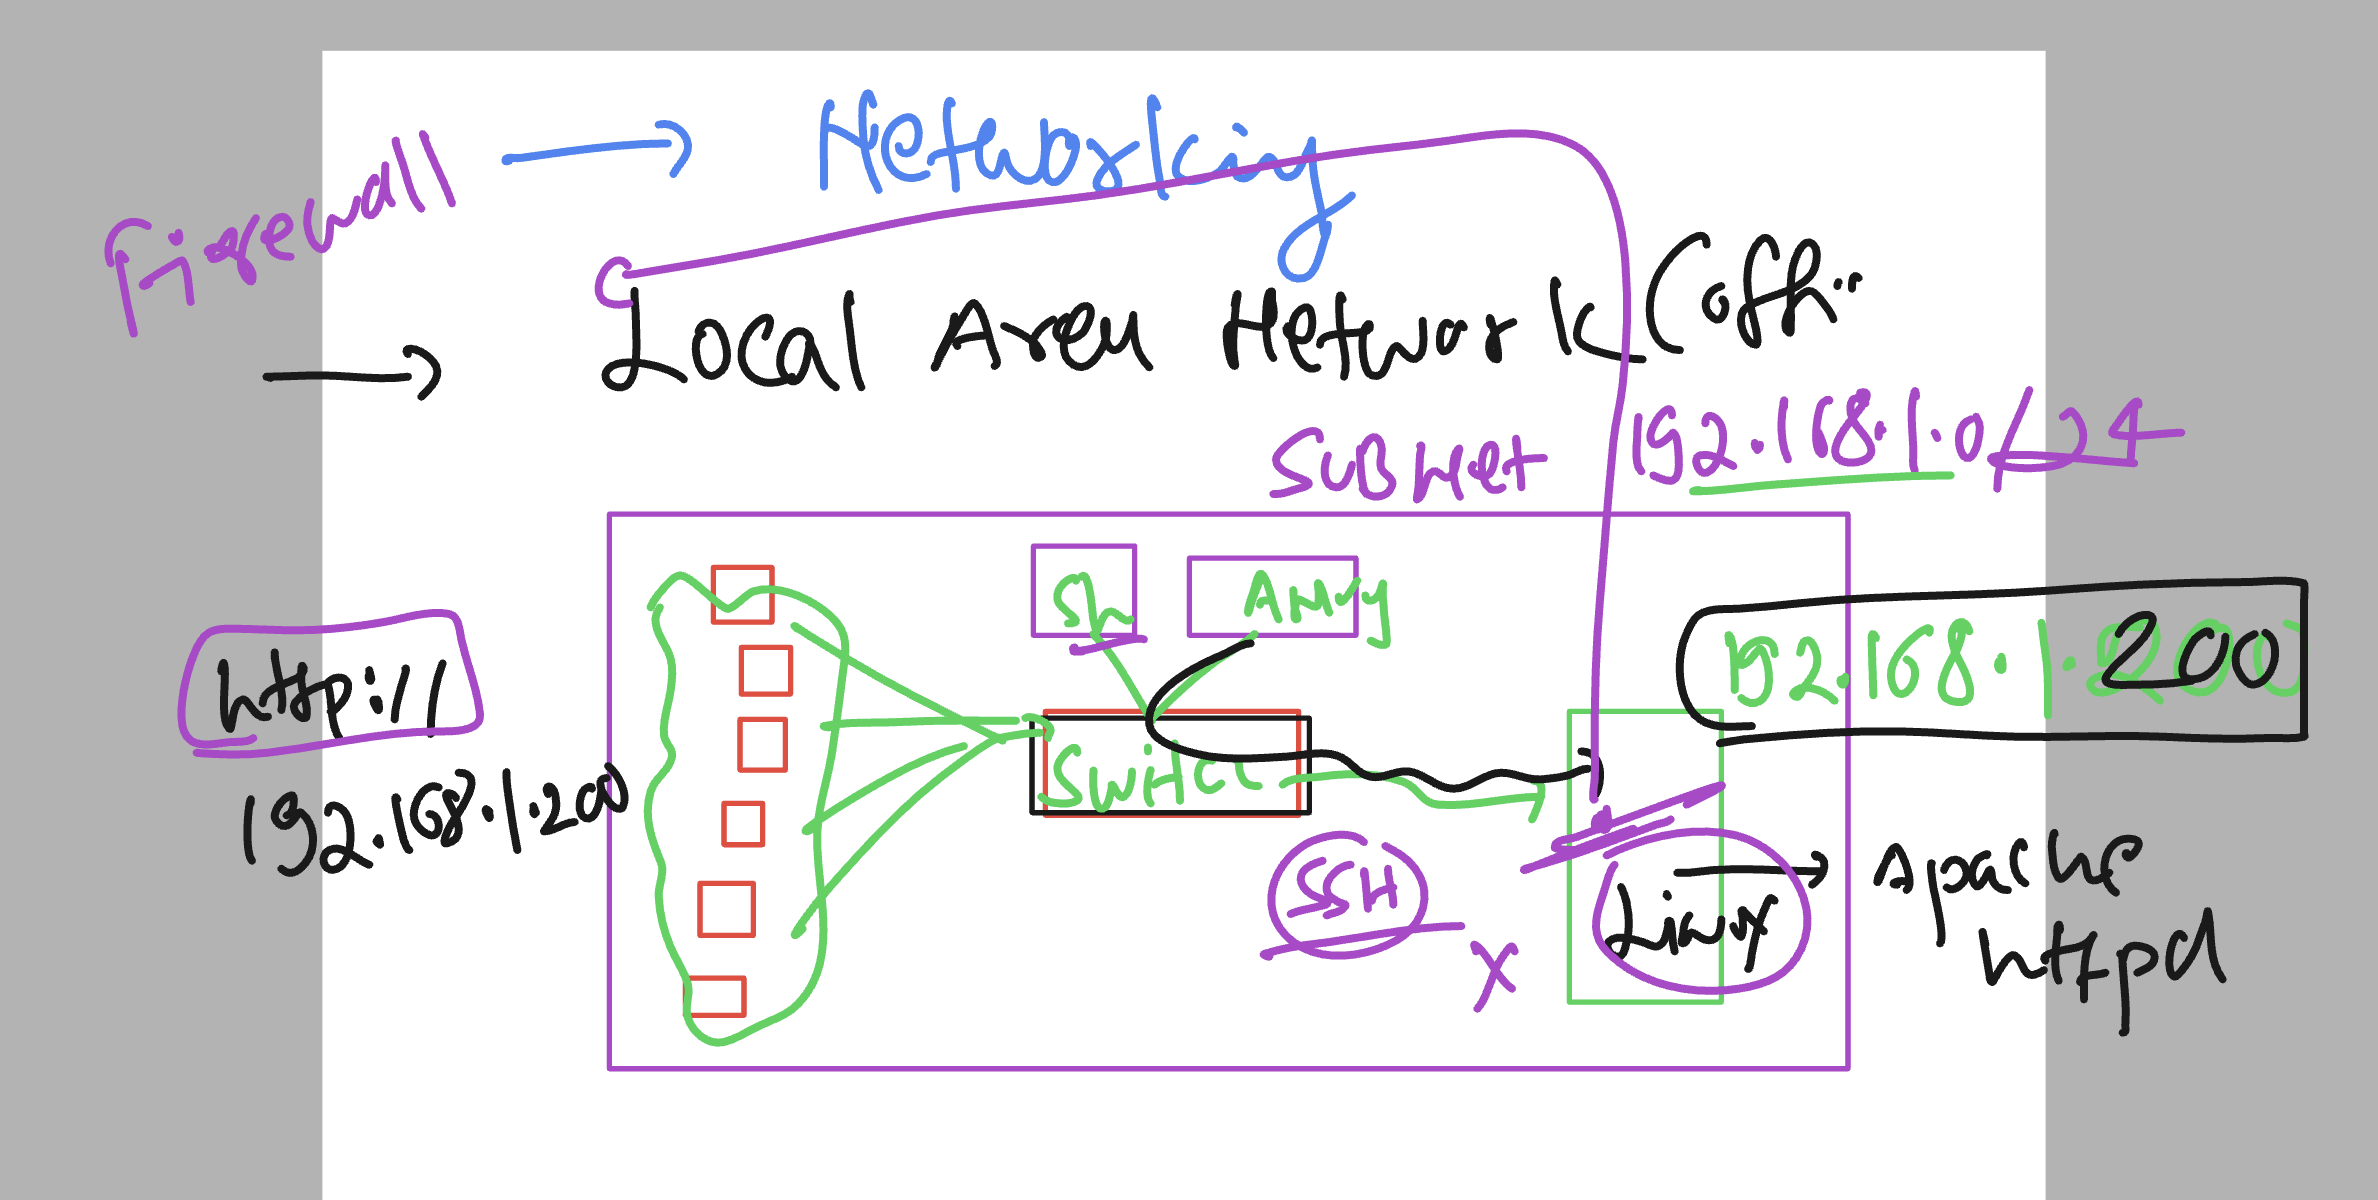 Firewall
Networking
Local Area Network (offi..
Subnet 192.168.1.0/24
Annvy
192.168.1.200
http://
192.168.1.200
Switch
SSH
X
Linux
Apache
httpd